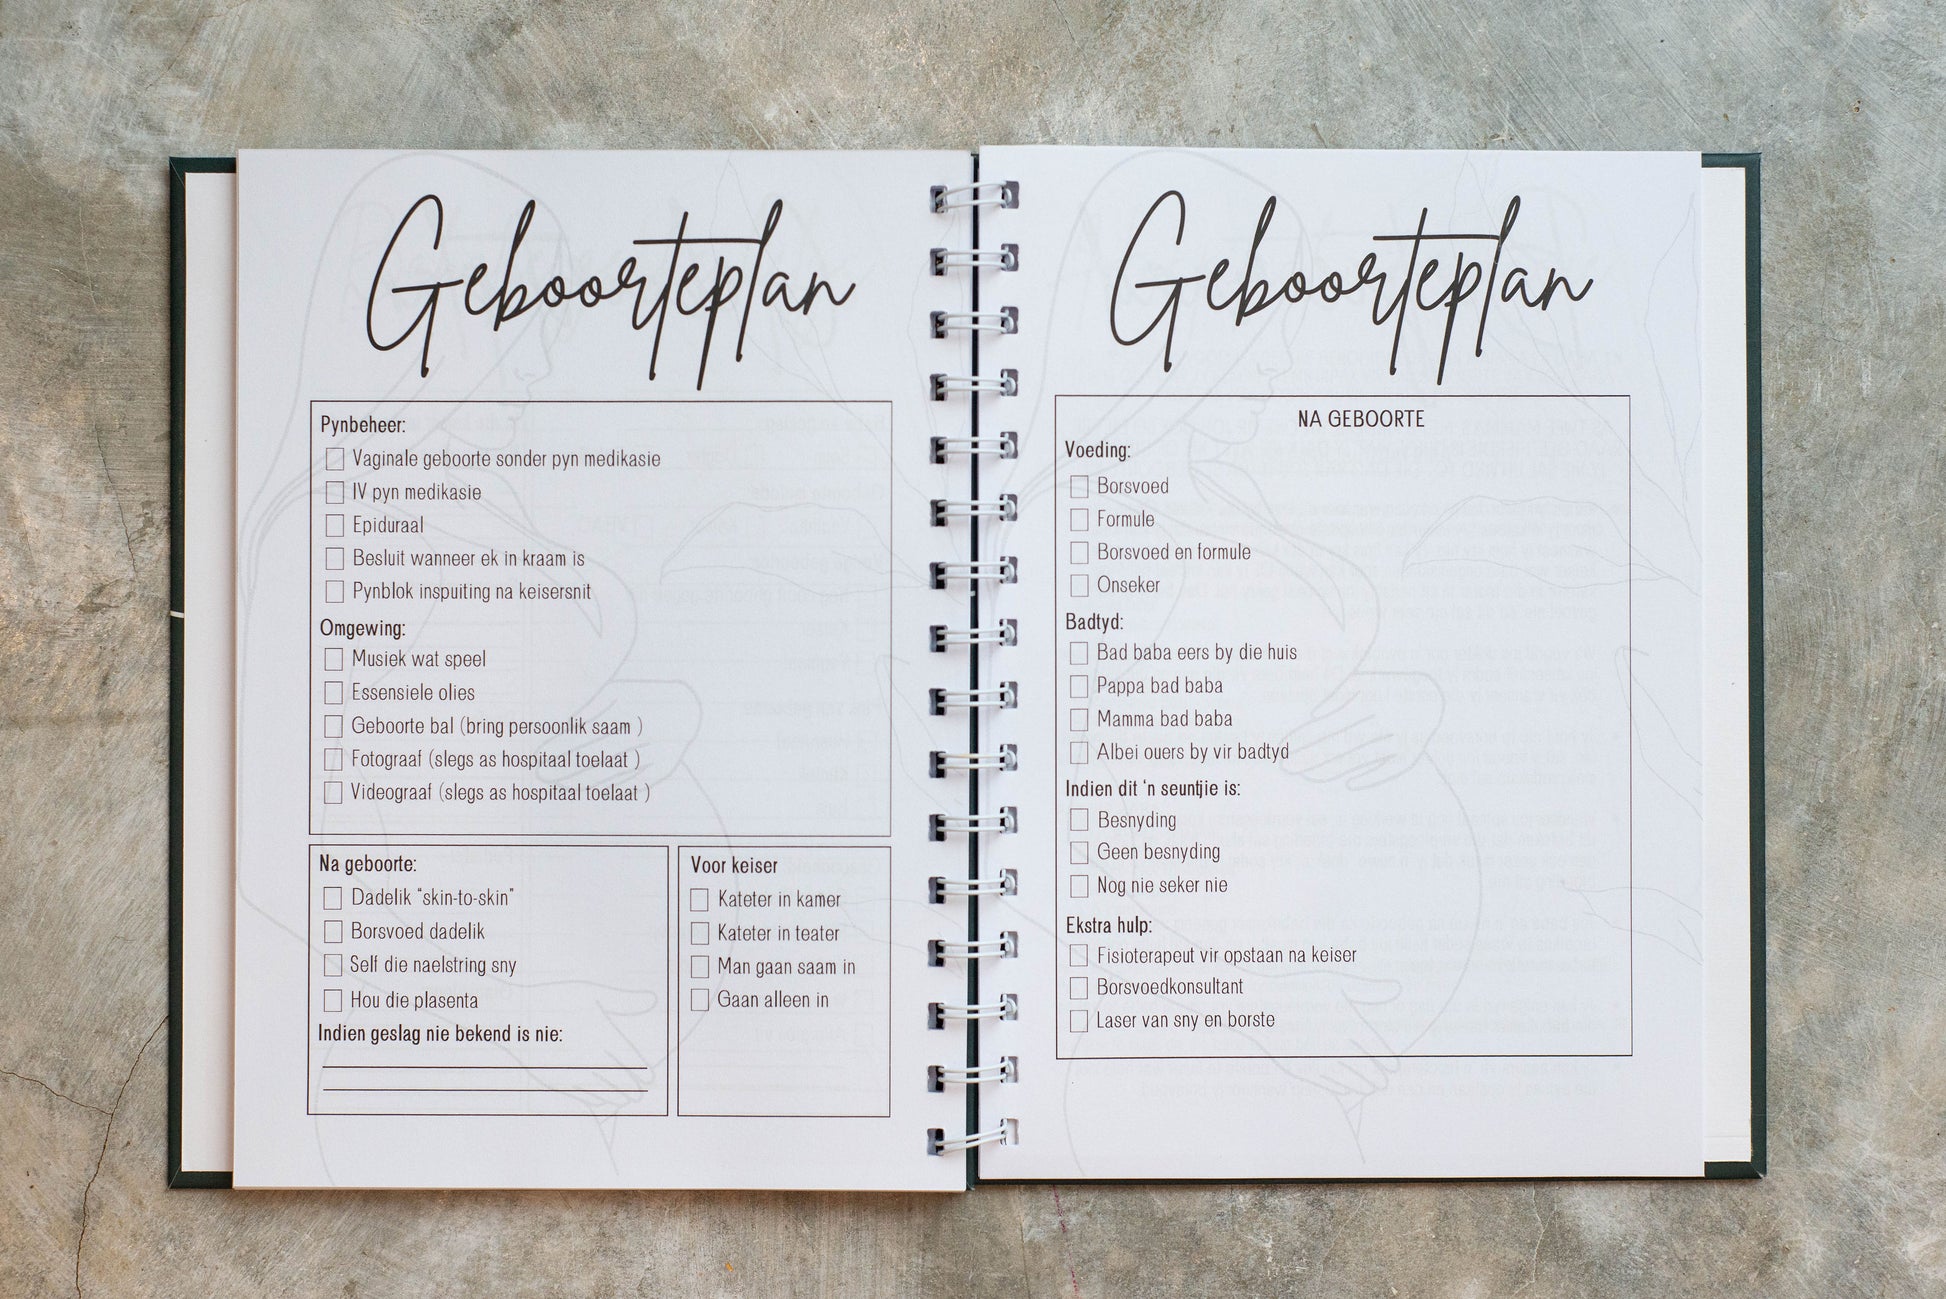 Geboorteplan
Pynbeheer:
Vaginale geboorte sonder pyn medikasie
IV pyn medikasie
Epiduraal
Besluit wanneer ek in kraam is
Pynblok inspuiting na keisersnit
Omgewing:
Musiek wat speel
Essensiele olies
Geboorte bal (bring persoonlik saam )
Fotograaf (slegs as hospitaal toelaat )
Videograaf (slegs as hospitaal toelaat )
Na geboorte:
Dadelik “skin-to-skin”
Borsvoed dadelik
Self die naelstring sny
Hou die plasenta
Indien geslag nie bekend is nie:
Voor keiser
Kateter in kamer
Kateter in teater
Man gaan saam in
Gaan alleen in
Geboorteplan
NA GEBOORTE
Voeding:
Borsvoed
Formule
Borsvoed en formule
Onseker
Badtyd:
Bad baba eers by die huis
Pappa bad baba
Mamma bad baba
Albei ouers by vir badtyd
Indien dit ‘n seuntjie is:
Besnyding
Geen besnyding
Nog nie seker nie
Ekstra hulp:
Fisioterapeut vir opstaan na keiser
Borsvoedkonsultant
Laser van sny en borste